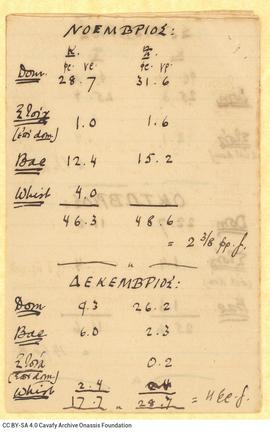 ΝΟΕΜΒΡΙΟΣ:
Dom 28.7 31.6
Στοιχ 1.0 1.6
(ἐπὶ dom.)
Bac 12.4 15.2
Whist 4.0
46.3 48.6
= 2 3/8
ΔΕΚΕΜΒΡΙΟΣ:
Dom 9.3 26.2
Bac 6.0 2.3
Στοιχ 0.2
(ἐπὶ dom.)
Whist 2.4
17.7 " 28.7
CC BY-SA 4.0 Cavafy Archive Onassis Foundation